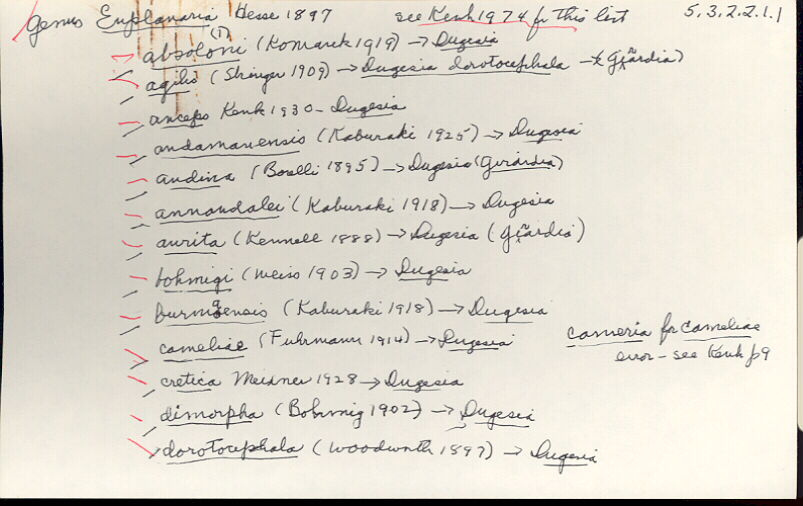 Genus Euplanaria Hesse 1897 see Kenk 1974 for this list 5.3.2.2.1.1
absoloni (1) (Komarek 1919) → Dugesia
agilis (Stringer 1909) → Dugesia dorotocephala → (Girardia)
anceps Kenk 1930 - Dugesia
andamanensis (Kaburaki 1925) → Dugesia
andina (Borelli 1895) → Dugesia (Girardia)
annandalei (Kaburaki 1918) → Dugesia
aurita (Kennell 1888) → Dugesia (Girardia)
bohmigi (Weiss 1903) → Dugesia
burmaensis (Kaburaki 1918) → Dugesia
cameliae (Fuhrmann 1914) → Dugesia
cameria for cameliae
error - see Kenk p9
cretica Meixner 1928 → Dugesia
dimorpha (Bohmig 1902) → Dugesia
dorotocephala (Woodworth 1897) → Dugesia